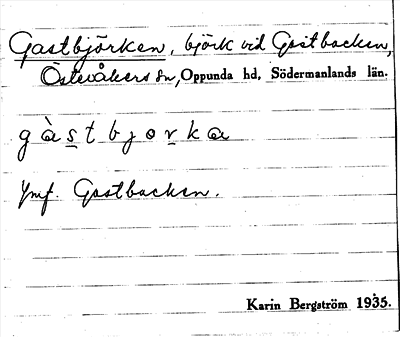 Gastbjörken, björk vid Gastbacken,
Österåkers sn, Oppunda hd, Södermanlands län.
gàs̲tbjor̲ka
Jmf. Gastbacken.
Karin Bergström 1935.